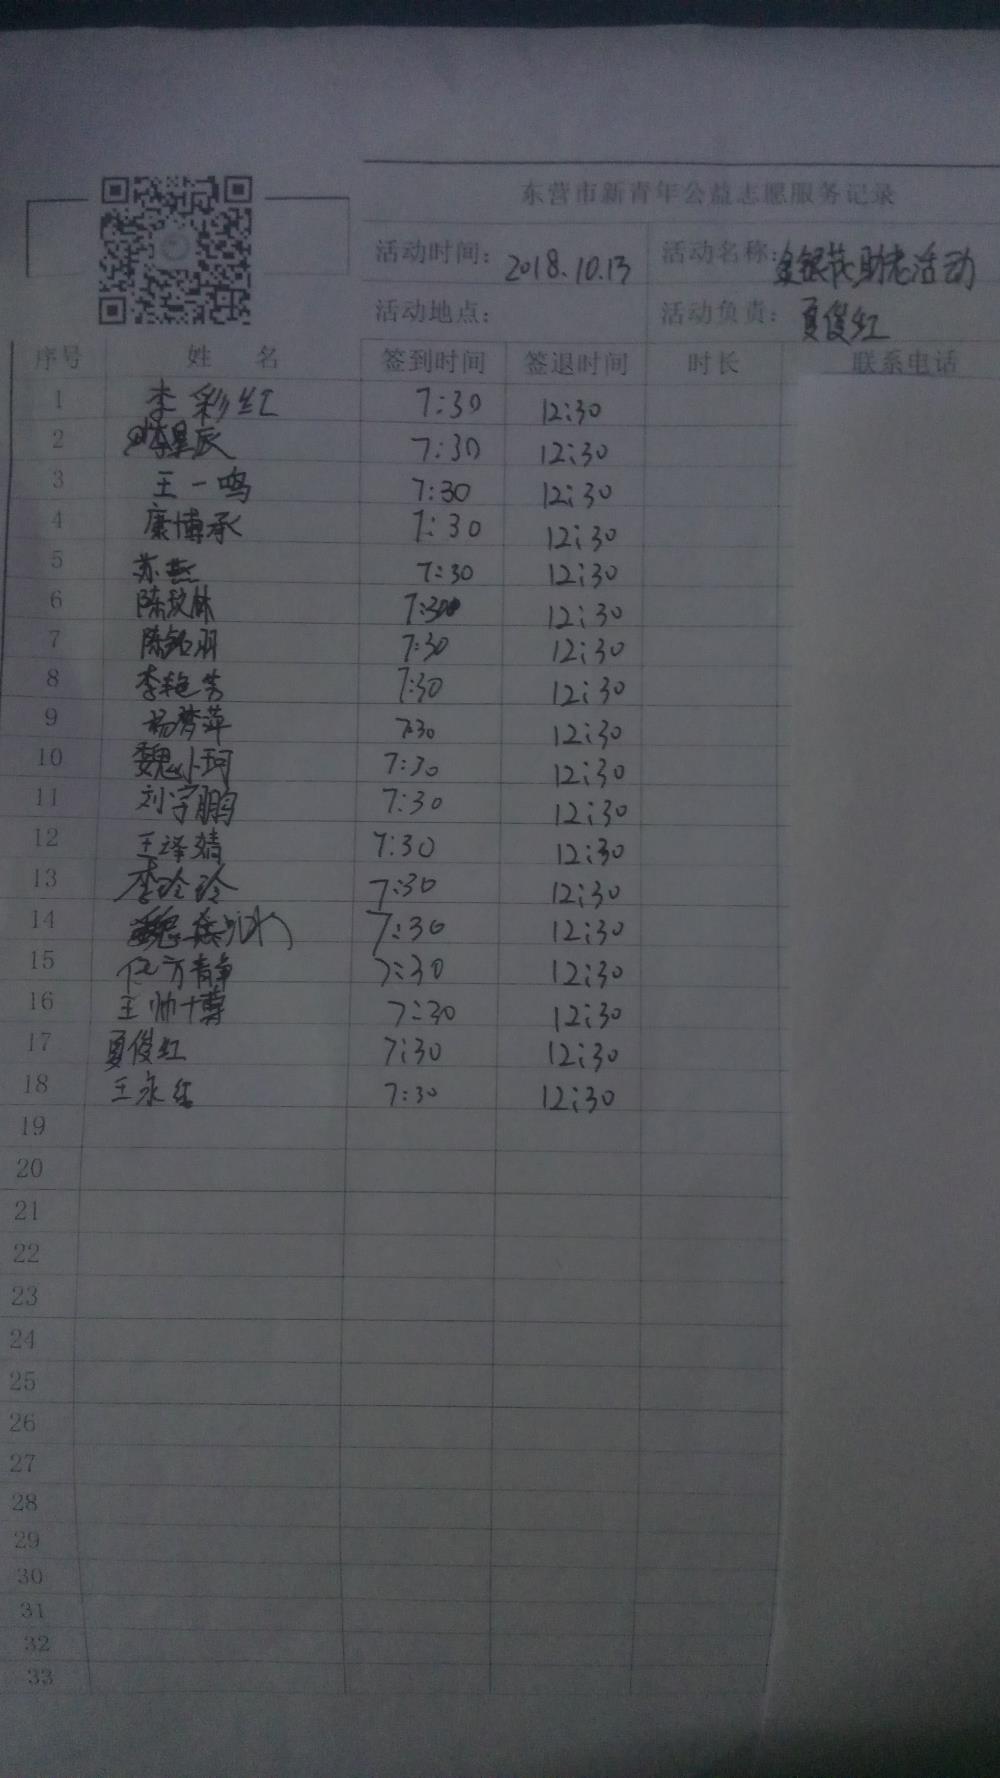 东营市新青年公益志愿服务记录
活动时间: 2018.10.13 活动名称: 金银花助老活动
活动地点: 活动负责: 夏俊红
序号 姓 名 签到时间 签退时间 时长 联系电话
1 李彩红 7:30 12:30
2 李星辰 7:30 12:30
3 王一鸣 7:30 12:30
4 康博承 7:30 12:30
5 苏燕 7:30 12:30
6 7:30 12:30
7 陈铭羽 7:30 12:30
8 李艳芳 7:30 12:30
9 杨梦萍 7:30 12:30
10 魏小珂 7:30 12:30
11 刘宇鹏 7:30 12:30
12 王泽婧 7:30 12:30
13 李玲玲 7:30 12:30
14 7:30 12:30
15 任方静 7:30 12:30
16 王帅博 7:30 12:30
17 夏俊红 7:30 12:30
18 王永红 7:30 12:30
19
20
21
22
23
24
25
26
27
28
29
30
31
32
33